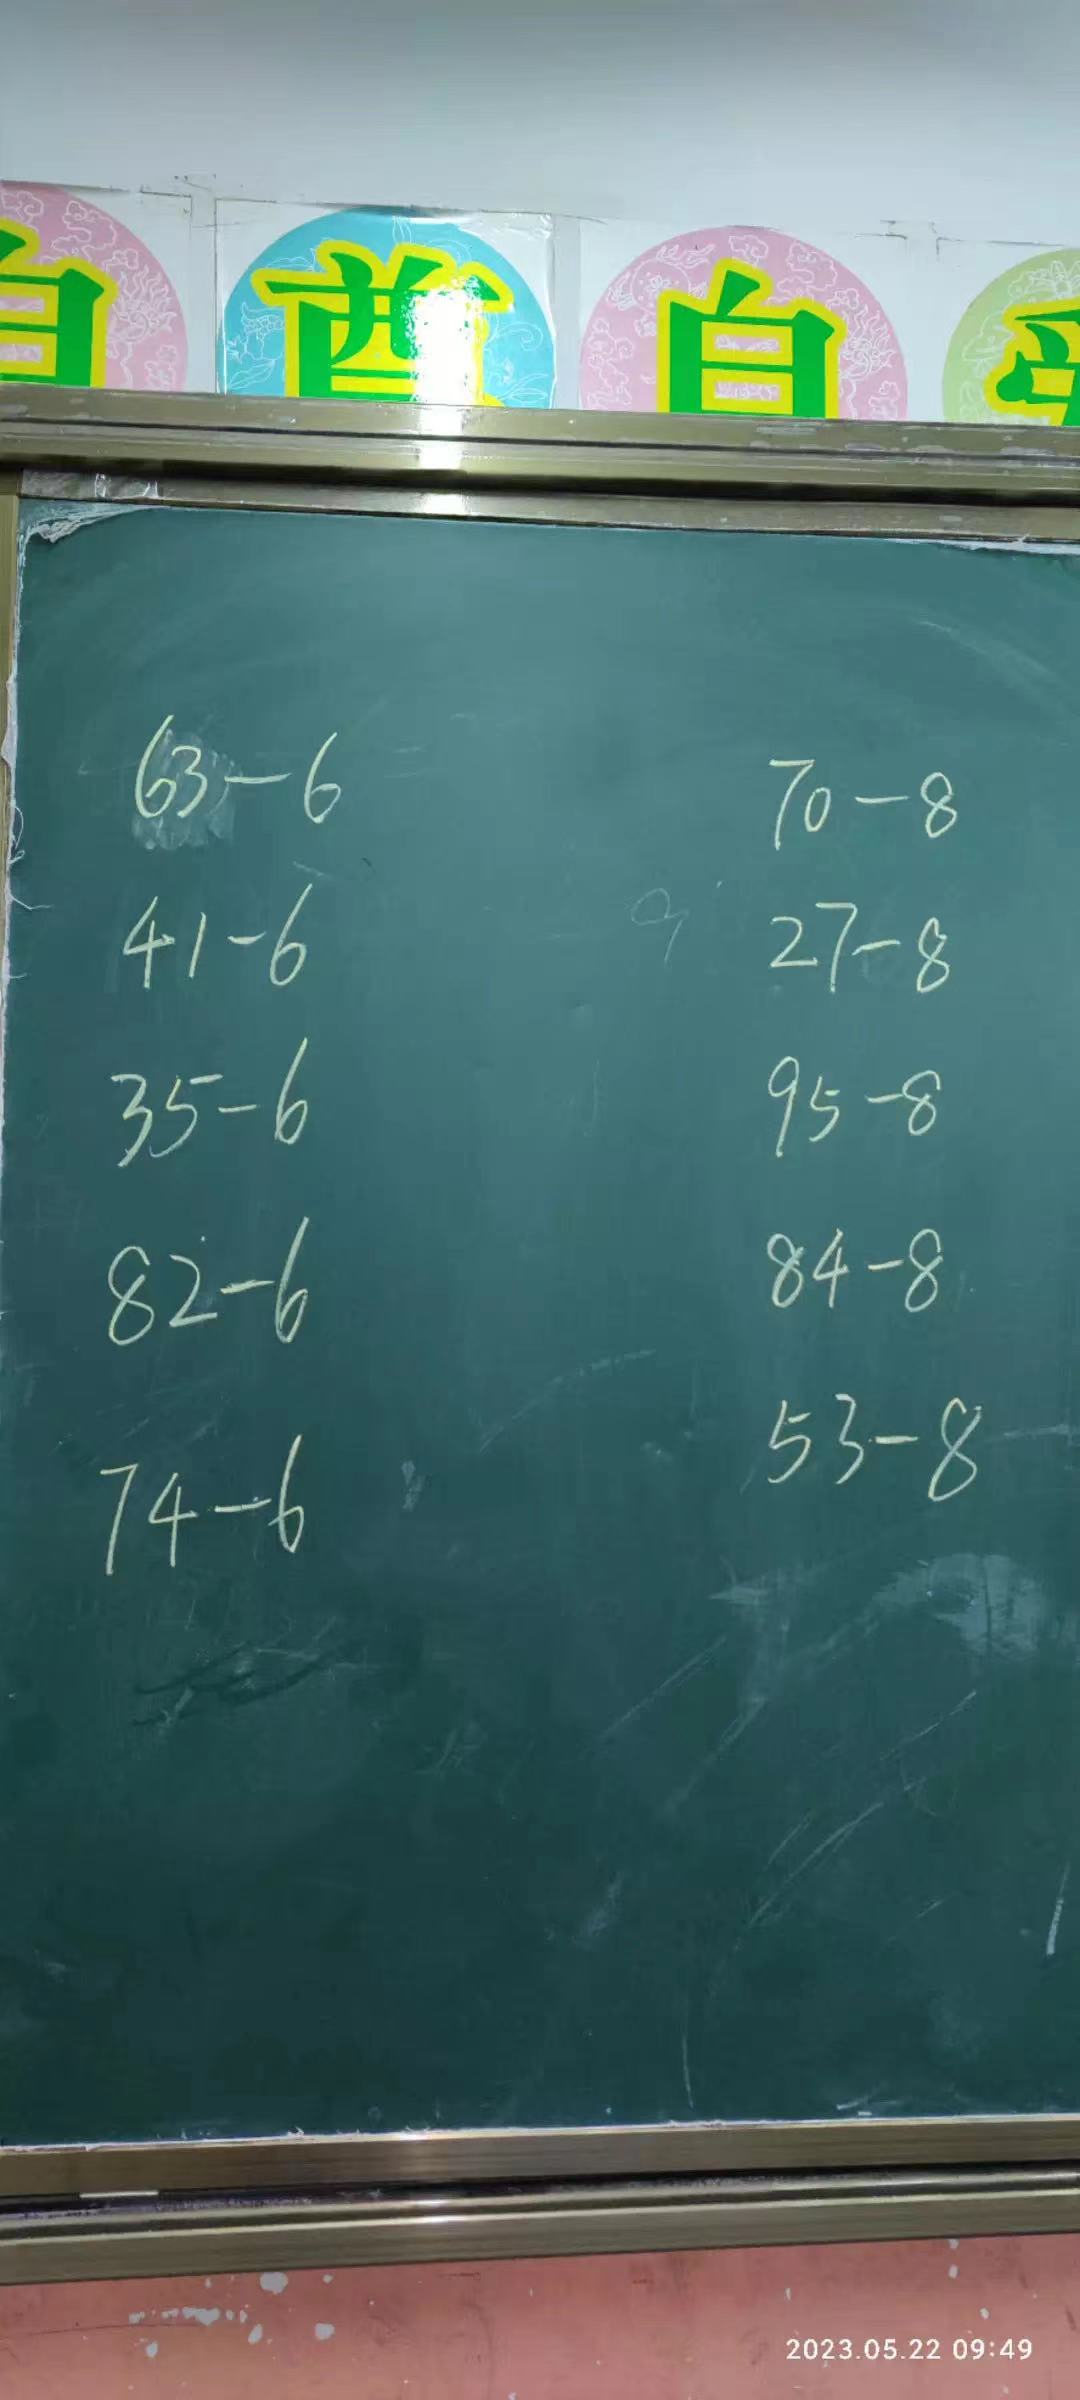 自 尊 自 爱
63-6
41-6
35-6
82-6
74-6
70-8
27-8
95-8
84-8
53-8
2023.05.22 09:49